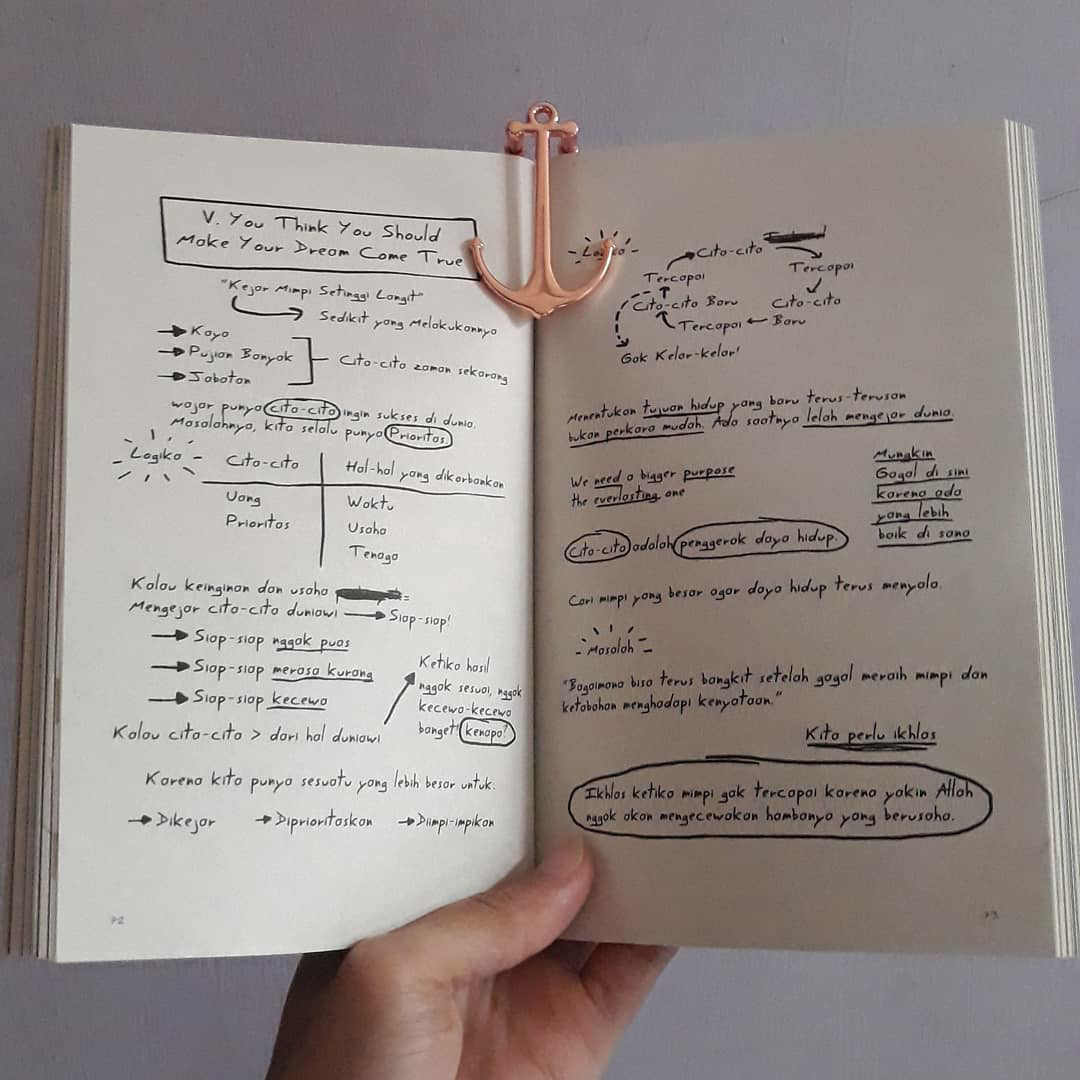 V. You Think You Should
Make Your Dream Come True
"Kejar Mimpi Setinggi Langit"
Sedikit yang Melakukannya
Kaya
Pujian Banyak
Jabatan
Cita-cita zaman sekarang
wajar punya cita-cita ingin sukses di dunia.
Masalahnya, kita selalu punya Prioritas.
Logika
Cita-cita
Hal-hal yang dikorbankan
Uang
Prioritas
Waktu
Usaha
Tenaga
Kalau keinginan dan usaha =
Mengejar cita-cita duniawi → Siap-siap!
Siap-siap nggak puas
Siap-siap merasa kurang
Siap-siap kecewa
Ketika hasil
nggak sesuai, nggak
kecewa-kecewa
banget! kenapa?
Kalau cita-cita > dari hal duniawi
Karena kita punya sesuatu yang lebih besar untuk:
→ Dikejar → Diprioritaskan → Diimpi-impikan
72
Logika
Cita-cita
Tercapai
Cita-cita
Baru
Tercapai
Cita-cita Baru
Tercapai
Gak Kelar-kelar!
Menentukan tujuan hidup yang baru terus-terusan
bukan perkara mudah. Ada saatnya lelah mengejar dunia.
We need a bigger purpose
the everlasting one
Mungkin
Gagal di sini
karena ada
yang lebih
baik di sana
Cita-cita adalah penggerak daya hidup.
Cari mimpi yang besar agar daya hidup terus menyala.
Masalah
"Bagaimana bisa terus bangkit setelah gagal meraih mimpi dan
ketabahan menghadapi kenyataan."
Kita perlu ikhlas
Ikhlas ketika mimpi gak tercapai karena yakin Allah
nggak akan mengecewakan hambanya yang berusaha.
73